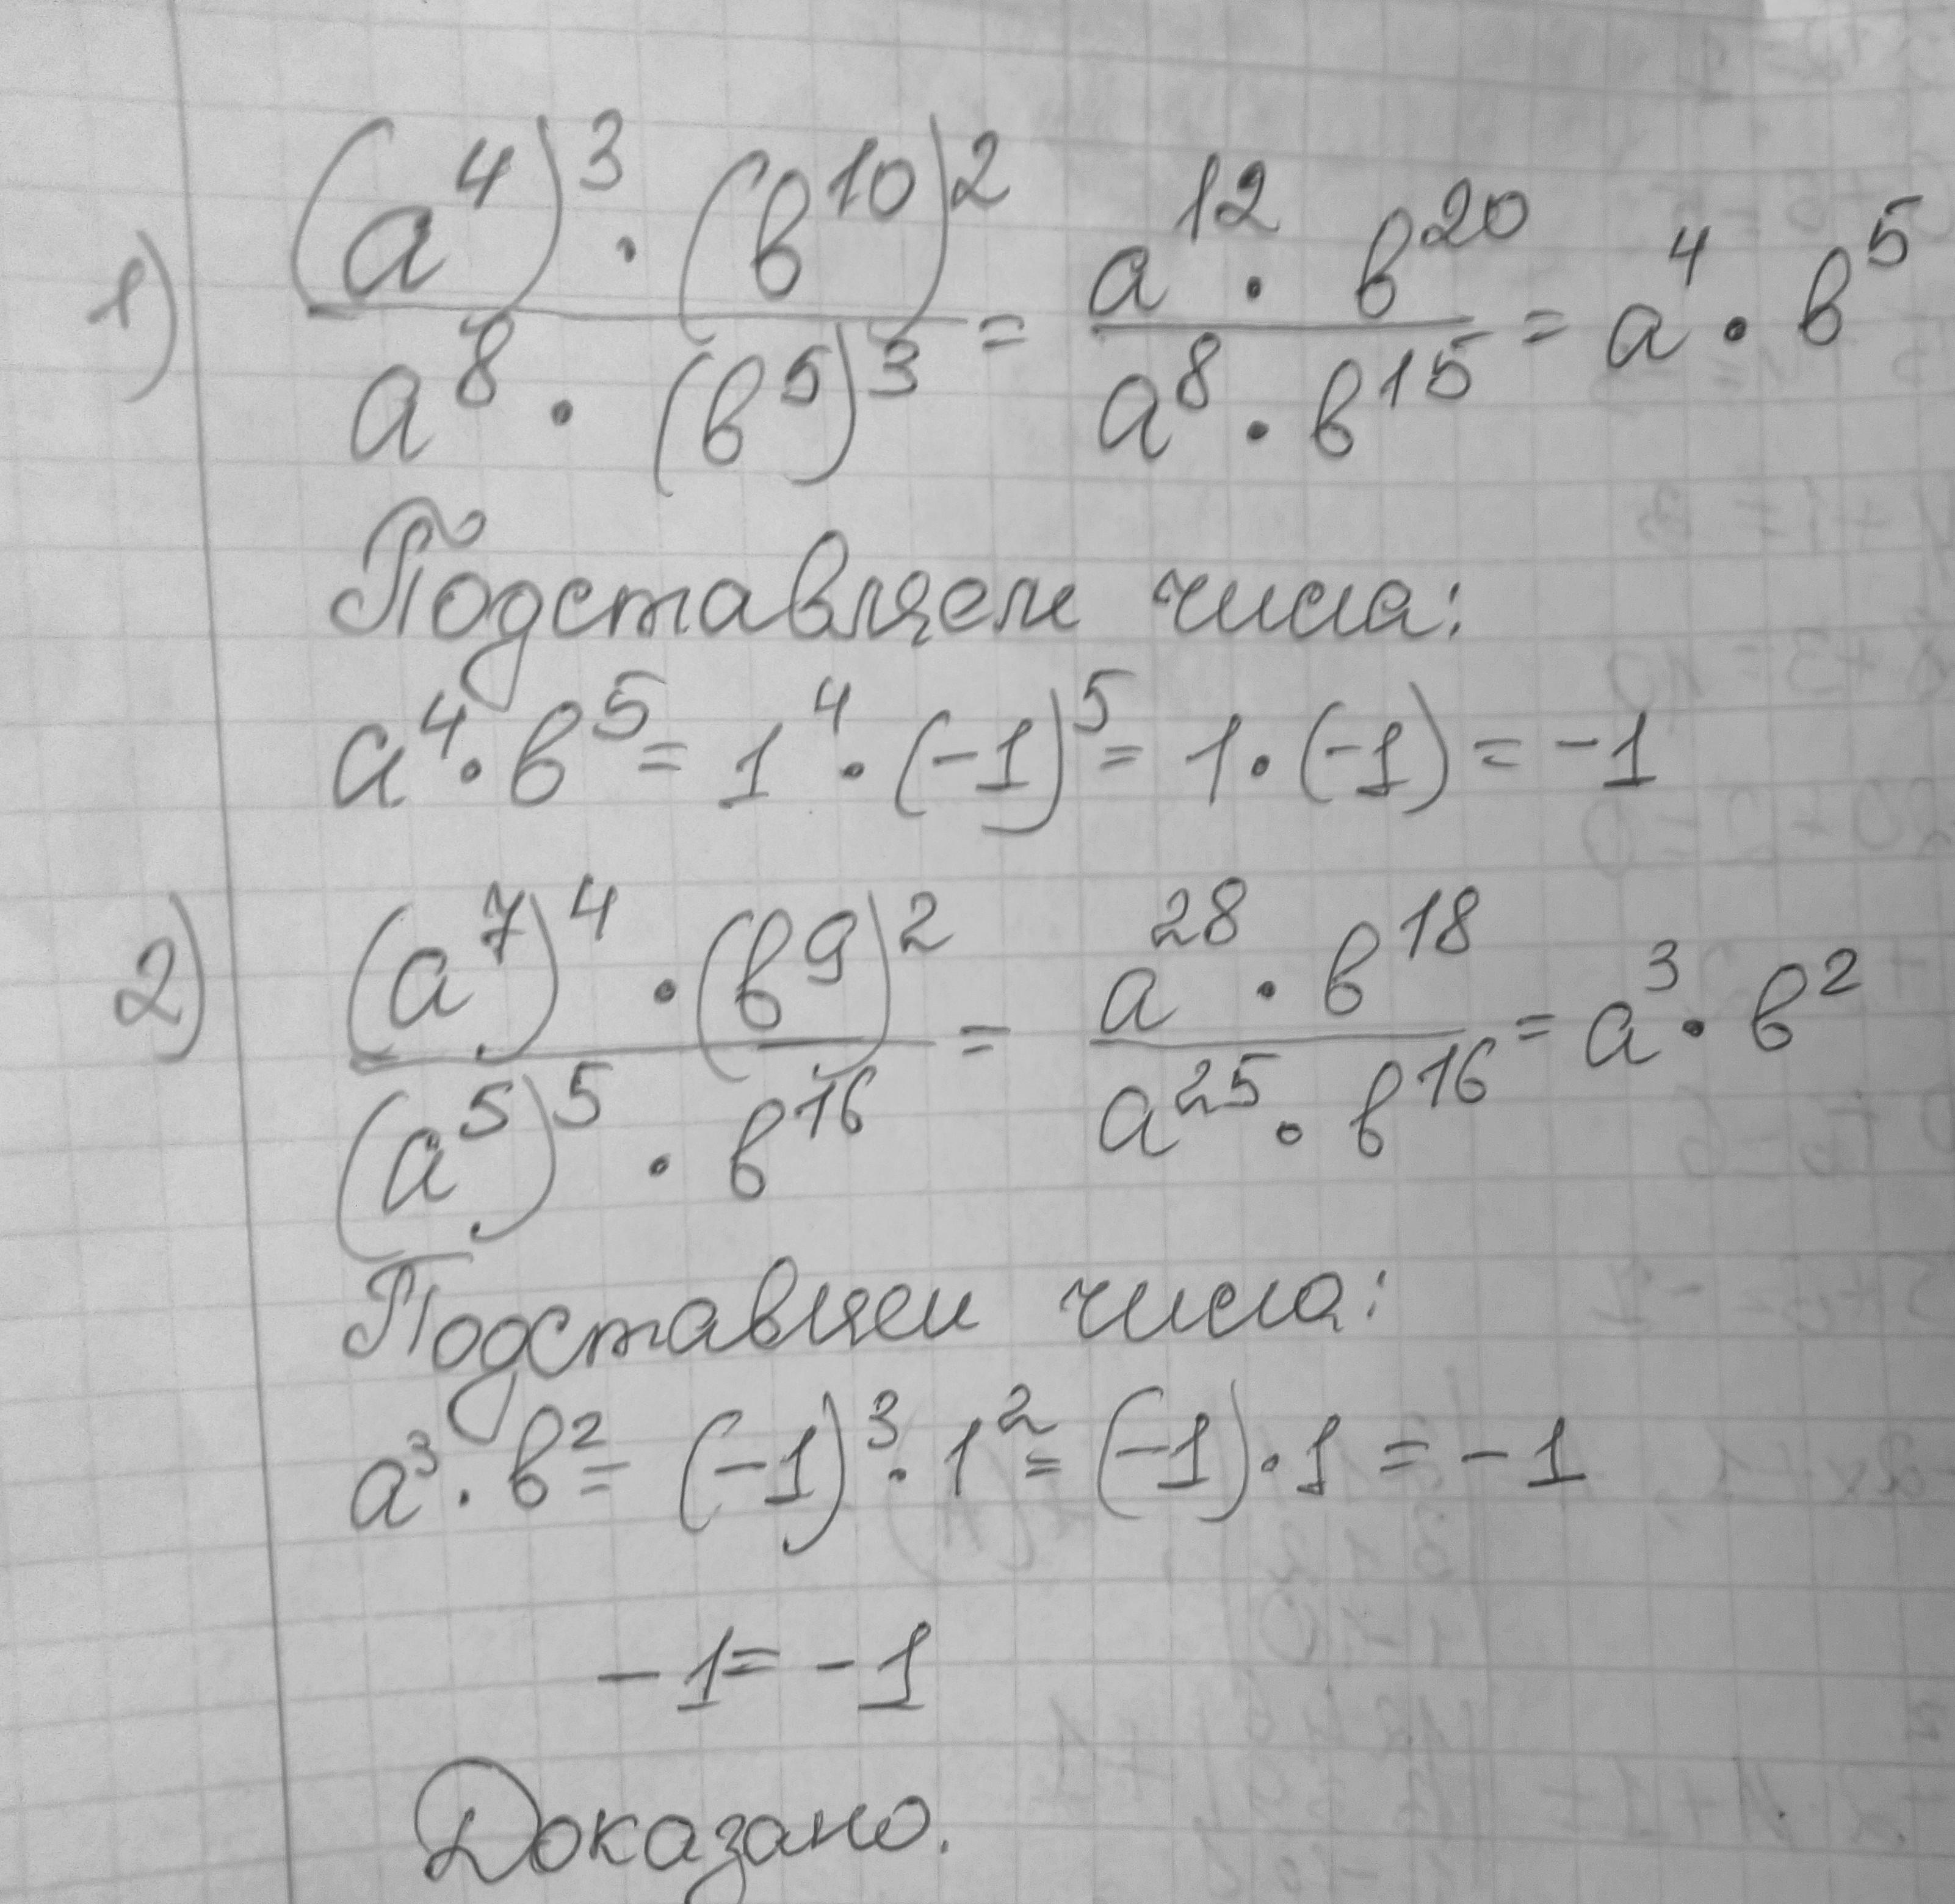 1) (a⁴)³ · (b¹⁰)² / a⁸ · (b⁵)³ = a¹² · b²⁰ / a⁸ · b¹⁵ = a⁴ · b⁵
Подставляем числа:
a⁴ · b⁵ = 1⁴ · (-1)⁵ = 1 · (-1) = -1
2) (a⁷)⁴ · (b⁹)² / (a⁵)⁵ · b¹⁶ = a²⁸ · b¹⁸ / a²⁵ · b¹⁶ = a³ · b²
Подставляем числа:
a³ · b² = (-1)³ · 1² = (-1) · 1 = -1
-1 = -1
Доказано.